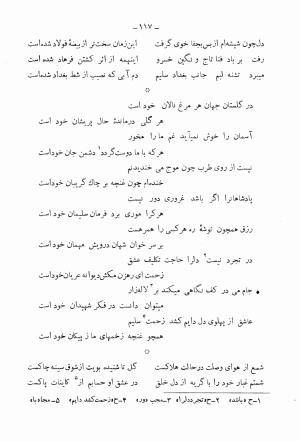 -۱۱۷-
دل‌چون شیشه‌ام از بس بجفا خوی گرفت این زمان سخت‌تر از بیضهٔ فولاد شده‌است
رفت بر باد فنا تاج و نگین خسرو اینهمه از اثر کشتن فرهاد شده است
میبرد تشنه لبم جانب بغداد سلیم دم آبی که نصیب از شط بغداد شده‌است
*
در گلستان جهان هر مرغ نالان خود است
هر گلی درماندهٔ حال پریشان خود است
آسمان را خوش نمیآید غم ما را مخور
هر که با ما دوست گردد۱ دشمن جان خود است
نیست از روی طرب چون موج می خندیدنم
خنده‌ام چون غنچه بر چاک گریبان خود است
پادشاهانرا اگر باشد غروری دور نیست
هر کرا موری برد فرمان سلیمان خود است
رزق همچون توشهٔ ره هر کسی را همرهست
بر سر خوان شهان درویش مهمان خود است
در تجرد نیست۲ دلرا حاجت تکلیف عشق
زحمت‌ای رهزن مکش دیوانه عریان خود است
جام می در کف نگاهی میکند بر۳ لاله‌زار
میتوان دانست در فکر شهیدان خود است
عاشق از پهلوی دل دایم کشد زحمت۴ سلیم
همچو غنچه زخمهای ما ز پیکان خود است
*
شمع از هوای وصلت در حالت هلاکست گل تا شنیده بویت از شوق سینه چاکست
شستم غبار خود را با گریه از دل خلق در عشق او حسابم از۵ کاینات پاکست
۱-ح «باشد» ۲-ح «تجرد دلرا» ۳-مجب دور» ۴-ح «زحمت کشد دایم» ۵-مجاه با»